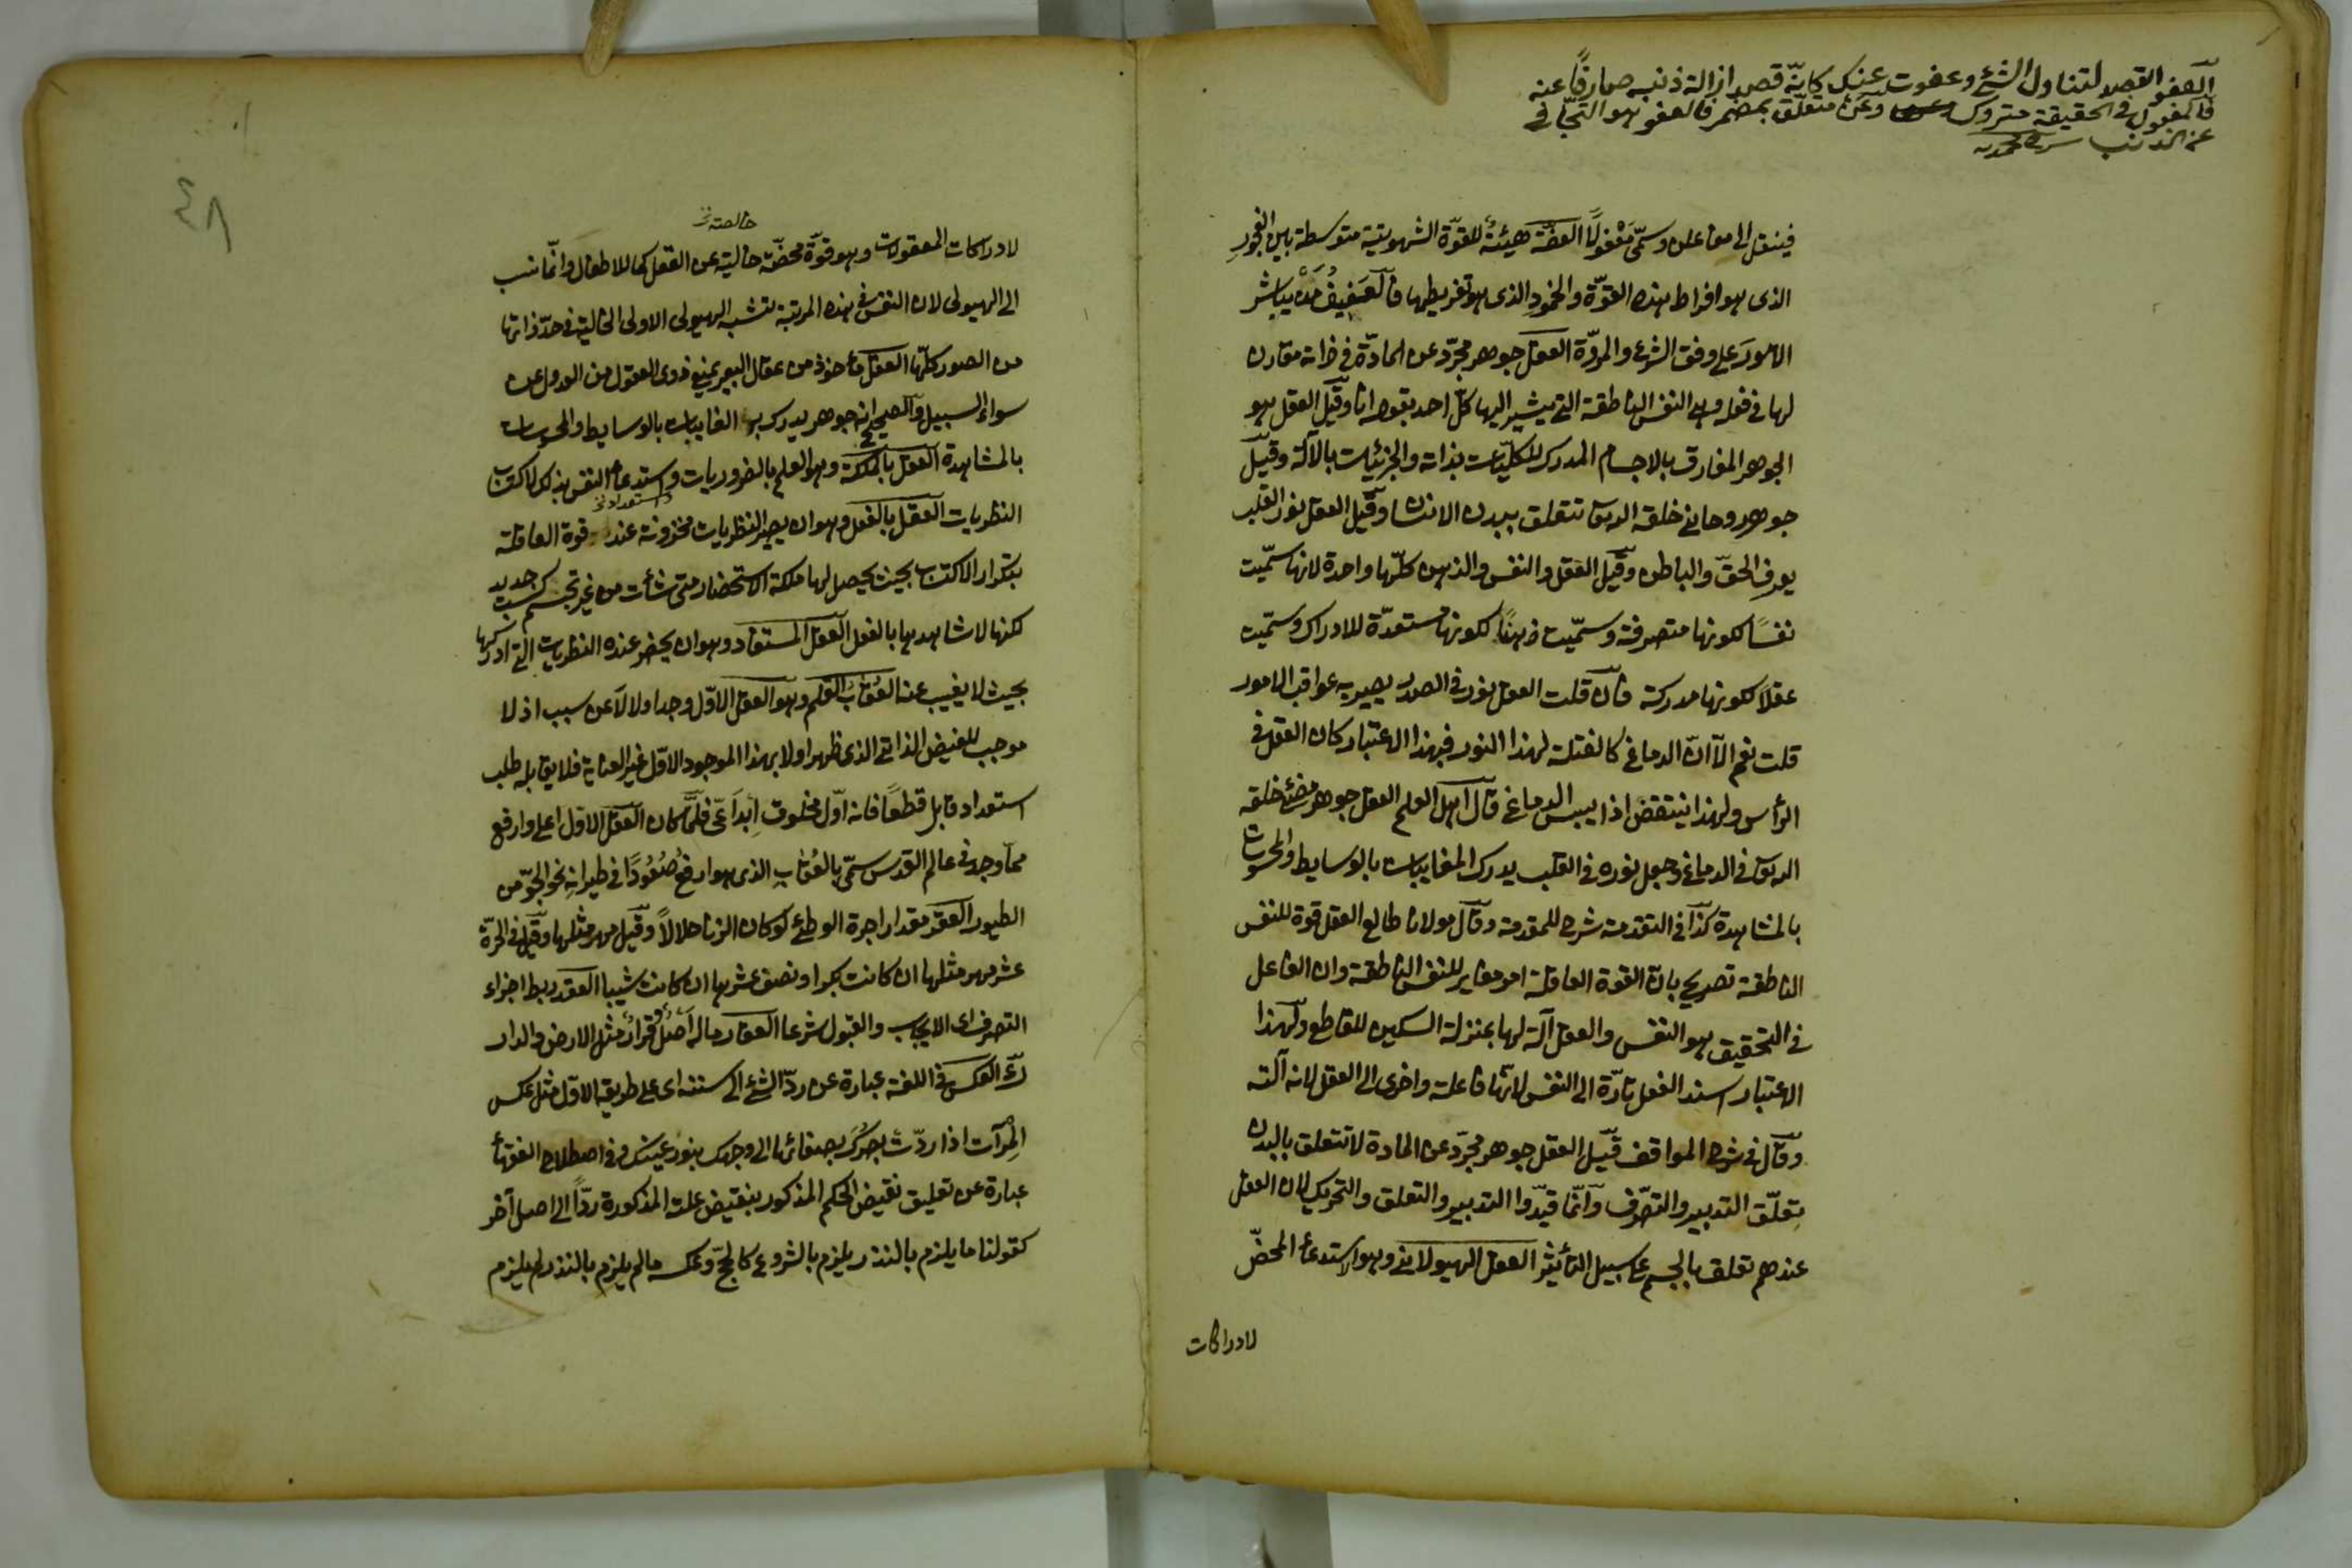 العفو القصد لتناول الشئ وعفوت عنك كانّه قصد ازالة ذنبه صارفًا عنه
فالمفعول فى الحقيقة متروك وعن متعلّق بمضمر فالعفو هو التجافى
عن الذنب
فينقل الى معا على وسمّى مَعْقولًا العفّة هيئةٌ للقوّة الشهويّة متوسطة بين الفجورِ
الذى هو افراط هذه القوّة والخمودِ الذى هو تفريطها فالعَفِيفُ مَنْ يباشر
الامورَ على وفق الشرع والمروّة العقل جوهر مجرّد عن المادّة فى ذاته مقارن
لها فى فعله وهى النفس الناطقة التى يشير اليها كلّ احد بقوله انا وقيل العقل هو
الجوهر المفارق بالاجسام المدرك للكليّات بذاته والجزئيات بالآلة وقيل
جوهر روحانى خلقه الله تع تتعلق ببدن الانسان وقيل العقل نور القلب
يعرف الحقّ والباطل وقيل العقل والنفس والذهن كلّها واحدة لانها سمّيت
نفسًا لكونها متصرفة وسمّيت ذهنًا لكونها مستعدّة للادراك وسمّيت
عقلًا لكونها مدركة فان قلت العقل نور فى الصدر يصير به عواقب الامور
قلت نعم الّا انّ الدماغ كالفتلة لهذا النور فبهذا الاعتبار كان العقل فى
الرأس ولهذا ينتقض اذا يبس الدماغ قال اهل العلم العقل جوهر مضئ خلقه
الله تع فى الدماغ وجعل نوره فى القلب يدرك المغايبات بالوسايط والمحسوسات
بالمشاهدة كذا فى التقدمة شرح للمقدمة وقال مولانا طالع العقل قوة للنفس
الناطقة تصريح بان القوة العاقلة امر مغاير للنفس الناطقة وان الفاعل
فى التحقيق هو النفس والعقل آلة لها بمنزلة السكين للقاطع ولهذا
الاعتبار اسند الفعل تارّة الى النفس لانّها فاعلة واخرى الى العقل لانه آلته
وقال فى شرح المواقف قيل العقل جوهر مجرّد عن المادة لا تتعلق بالبدن
تعلّق التدبير والتصرّف وانّما قيدّوا التدبير والتعلق والتحريك لان العقل
عندهم تعلق بالجسم على سبيل التأثير العقل الهيولانى وهو الاستدعاء المحضّ
لادراكات
٤٨
خالصة نخ
لادراكات المعقولات وهو قوّة محضّة خالية عن الفعل كما للاطفال وانّما نسب
الى الهيولى لان النفس فى هذه المرتبة تشبه الهيولى الاولى الخالية فى حدّ ذاتها
من الصور كلّها العقل مأخوذ من عقال البعير يمنع ذوى العقول من العدول عن
سواء السبيل والصحيح انه جوهر يدرك به الغايبات بالوسايط والمحسوسات
بالمشاهدة العقل بالملكة وهو العلم بالضروريات واستدعاء النفس بذلك لاكتساب
واستعداد نخ
النظريات العقل بالفعل وهو ان يصير النظريات مخزونة عند قوة العاقلة
بتكرار الاكتساب بحيث يحصل لها ملكة الاستحضار متى شأت من غير تجشم كسب جديد
لكنها لا شاهدها بالفعل العقل المستفاد وهو ان يحضر عنده النظريات التى ادركها
بحيث لا يغيب عنه العُقابُ القلم وهو العقل الاوّل وجد اولا لا عن سبب اذ لا
موجب للفيض الذاتى الذى ظهر اولا بهذا الموجود الاوّل غير العناية فلا يقابله طلب
استعداد قابل قطعًا فانه اوّل مخلوق اِبْداعىّ فلمّا كان العقل الاوّل اعلى وارفع
ممّا وجد فى عالم القدس سمّى بالعُقابِ الذى هو ارفعُ صُعُودًا فى طيرانه نحو الجوّ من
الطيور العقر مقدار اجرة الوطئ لو كان الزنا حلالًا وقيل مهر مثلها وقيل فى الحرّة
عشر مهر مثلها ان كانت بكرا ونصف عشرها ان كانت ثيبا العقد ربط اجزاء
التصرف اى الايجاب والقبول شرعا العقار ماله اصلٌ وقرارٌ مثل الارض والدار
العكس فى اللغة عبارة عن ردّ الشئ الى سننه اى على طريقه الاوّل مثل عكس
المِرآت اذا ردّت بصرُكَ بصفائها الى وجهك بنور عينك وفى اصطلاح الفقهاء
عبارة عن تعليق نقيض الحكم المذكور بنقيض علته المذكورة ردّاً الى اصل آخر
كقولنا ما يلزم بالنذر يلزم بالشروع كالحجّ وعكسه ما لم يلزم بالنذر لم يلزم